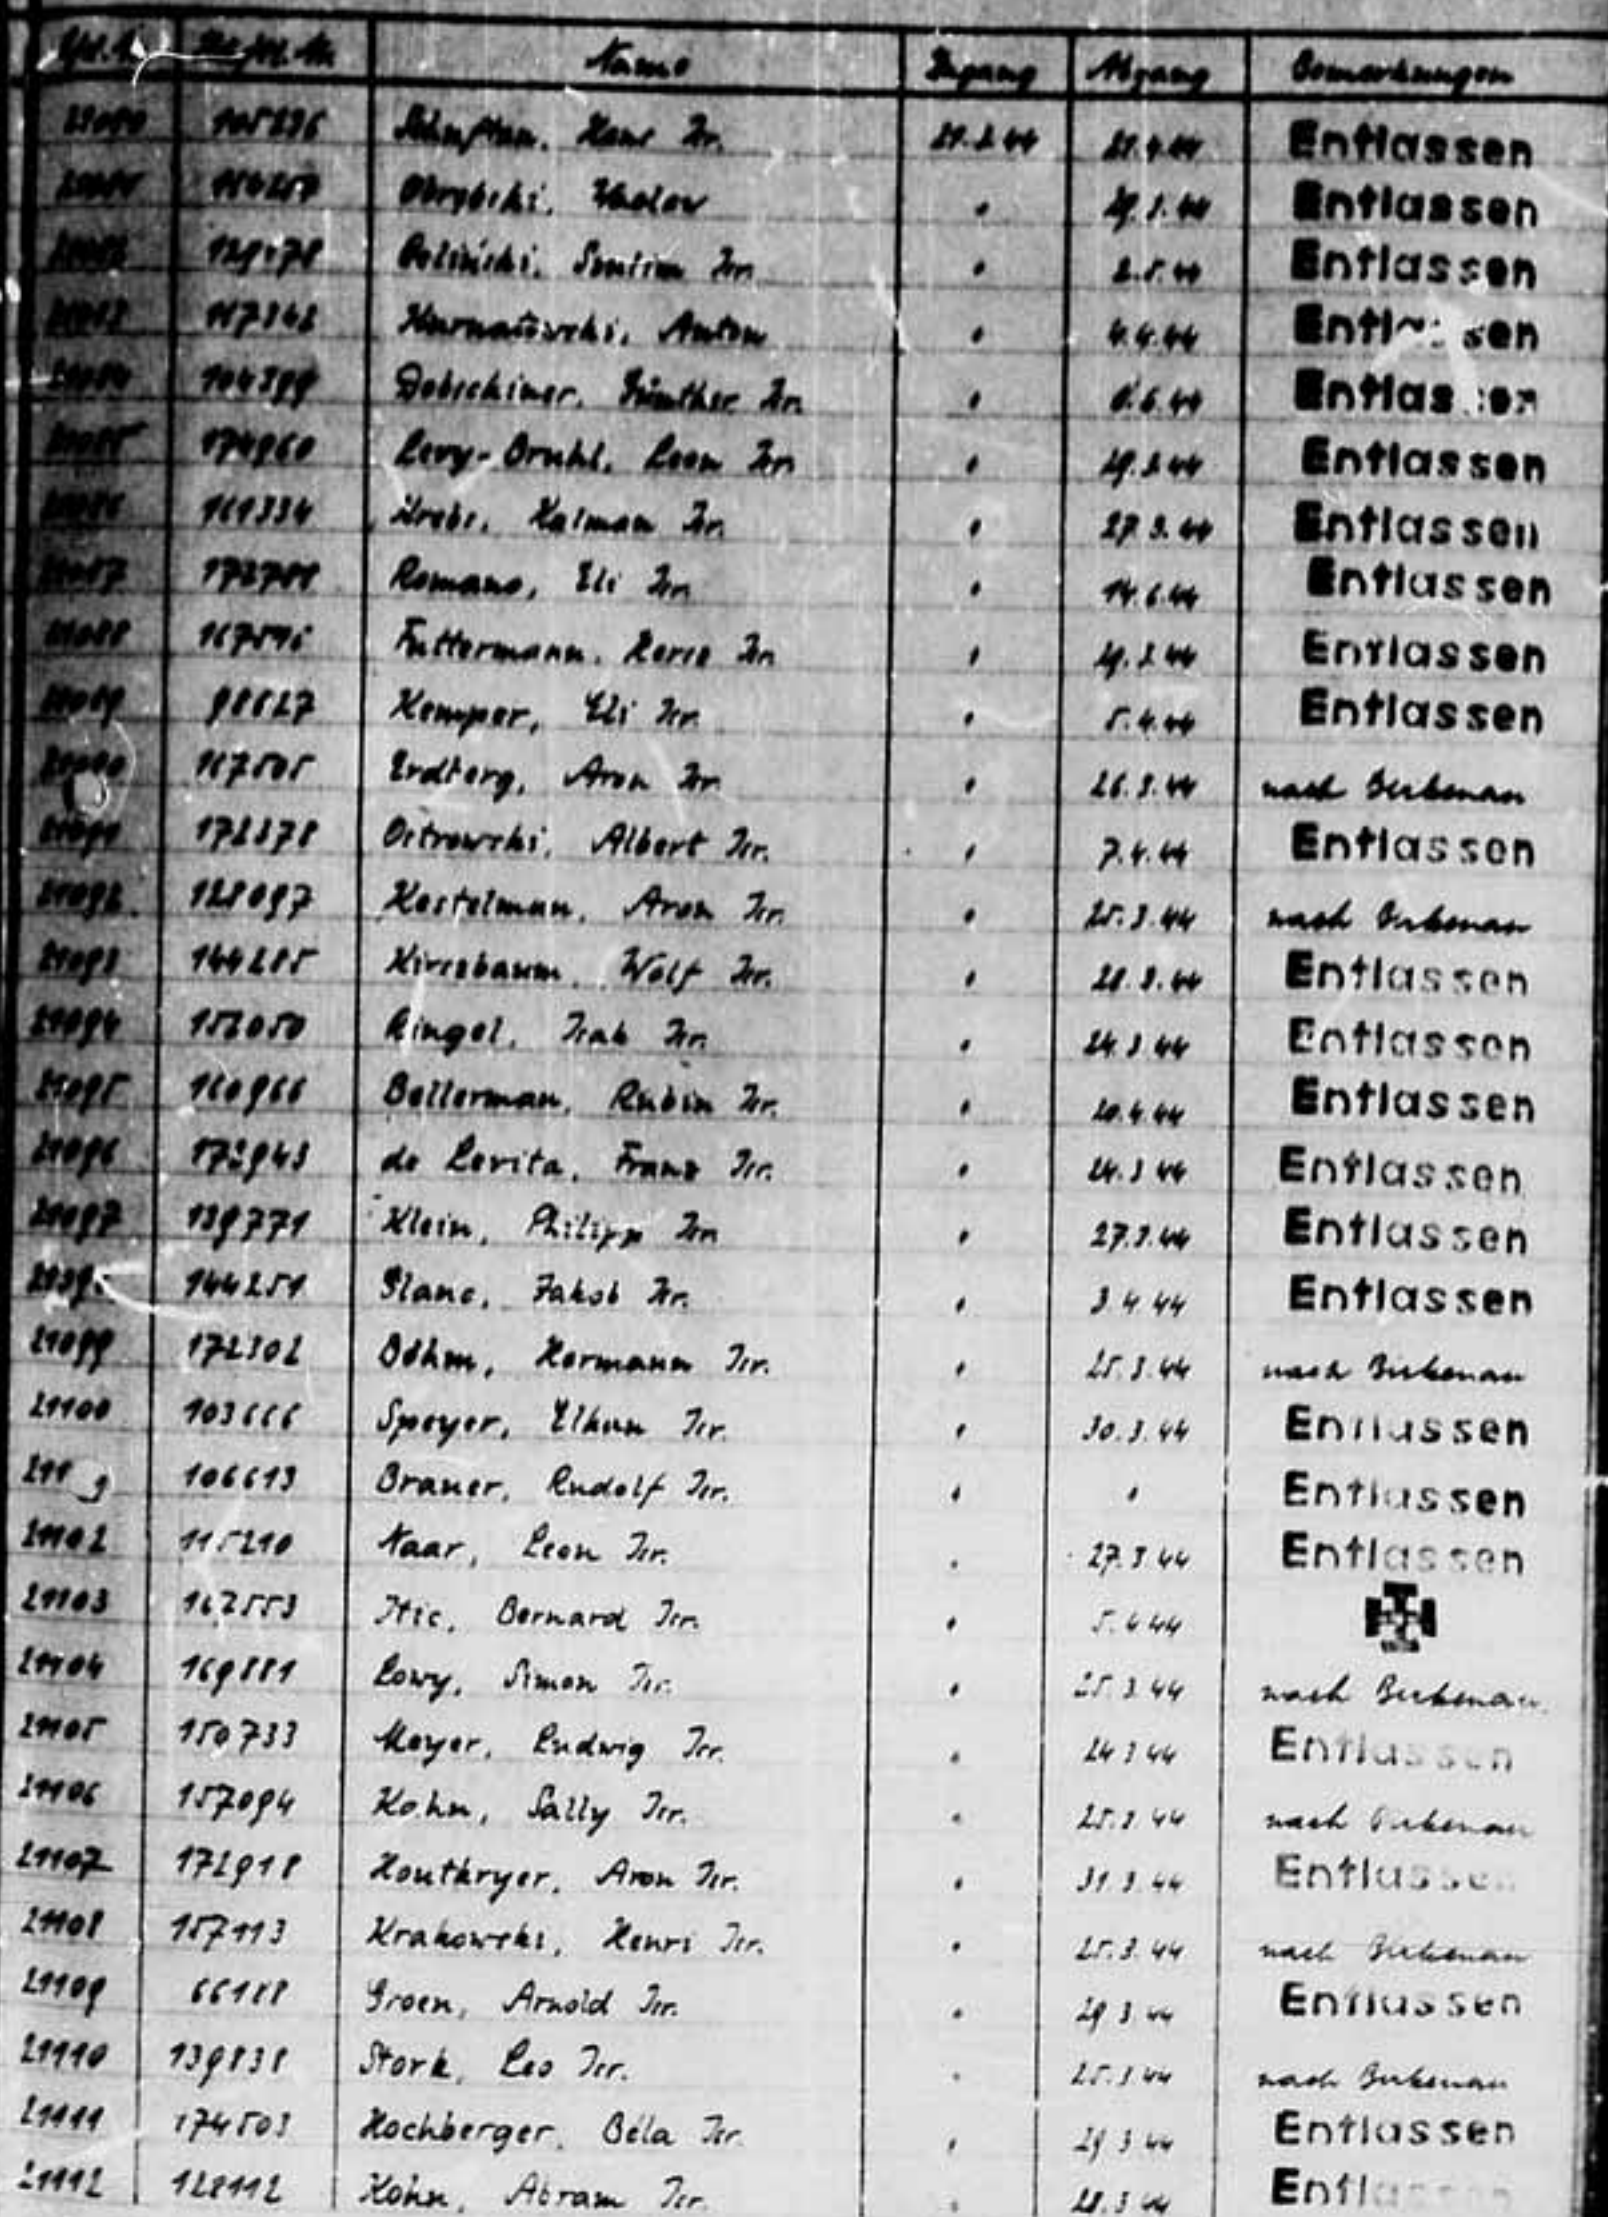 Name Zugang Abgang Bemerkungen
105236 Hans Isr. 21.3.44 Entlassen
" 29.3.44 Entlassen
" 2.5.44 Entlassen
117342 Anton " 4.4.44 Entlassen
104399 Dobschiner, Günther Isr. " 6.6.44 Entlassen
174960 Levy-Bruhl, Leon Isr. " 29.3.44 Entlassen
161334 Krebs, Kalman Isr. " 27.3.44 Entlassen
Romano, Eli Isr. " 14.6.44 Entlassen
21088 Futtermann, Isr. " 29.3.44 Entlassen
21089 98627 Kemper, Eli Isr. " 5.4.44 Entlassen
21090 167505 Erdberg, Aron Isr. " 26.3.44 nach Birkenau
21091 172378 Ostrowski, Albert Isr. " 7.4.44 Entlassen
21092 128097 Kestelman, Aron Isr. " 25.3.44 nach Birkenau
21093 144285 Kirszbaum, Wolf Isr. " 28.3.44 Entlassen
21094 152050 Ringel, Isak Isr. " 24.3.44 Entlassen
21095 160966 Bellerman, Rubin Isr. " 20.4.44 Entlassen
21096 172943 de Levita, Franz Isr. " 24.3.44 Entlassen
21097 139771 Klein, Philipp Isr. " 27.3.44 Entlassen
144251 Jakob Isr. " 3.4.44 Entlassen
21099 172302 Böhm, Hermann Isr. " 25.3.44 nach Birkenau
21100 103666 Speyer, Elkan Isr. " 30.3.44 Entlassen
106613 Braner, Rudolf Isr. " " Entlassen
21102 115210 Naar, Leon Isr. " 27.3.44 Entlassen
21103 167553 Itic, Bernard Isr. " 5.4.44
21104 169881 Lowy, Simon Isr. " 25.3.44 nach Birkenau
21105 150733 Meyer, Ludwig Isr. " 24.3.44 Entlassen
21106 157094 Kohn, Sally Isr. " 25.3.44 nach Birkenau
21107 172918 Houtkryer, Aron Isr. " 31.3.44 Entlassen
21108 157113 Krakowski, Henri Isr. " 25.3.44 nach Birkenau
21109 66188 Groen, Arnold Isr. " 29.3.44 Entlassen
21110 139838 Stork, Leo Isr. " 25.3.44 nach Birkenau
21111 174503 Hochberger, Béla Isr. " 29.3.44 Entlassen
21112 128112 Kohn, Abram Isr. " 28.3.44 Entlassen